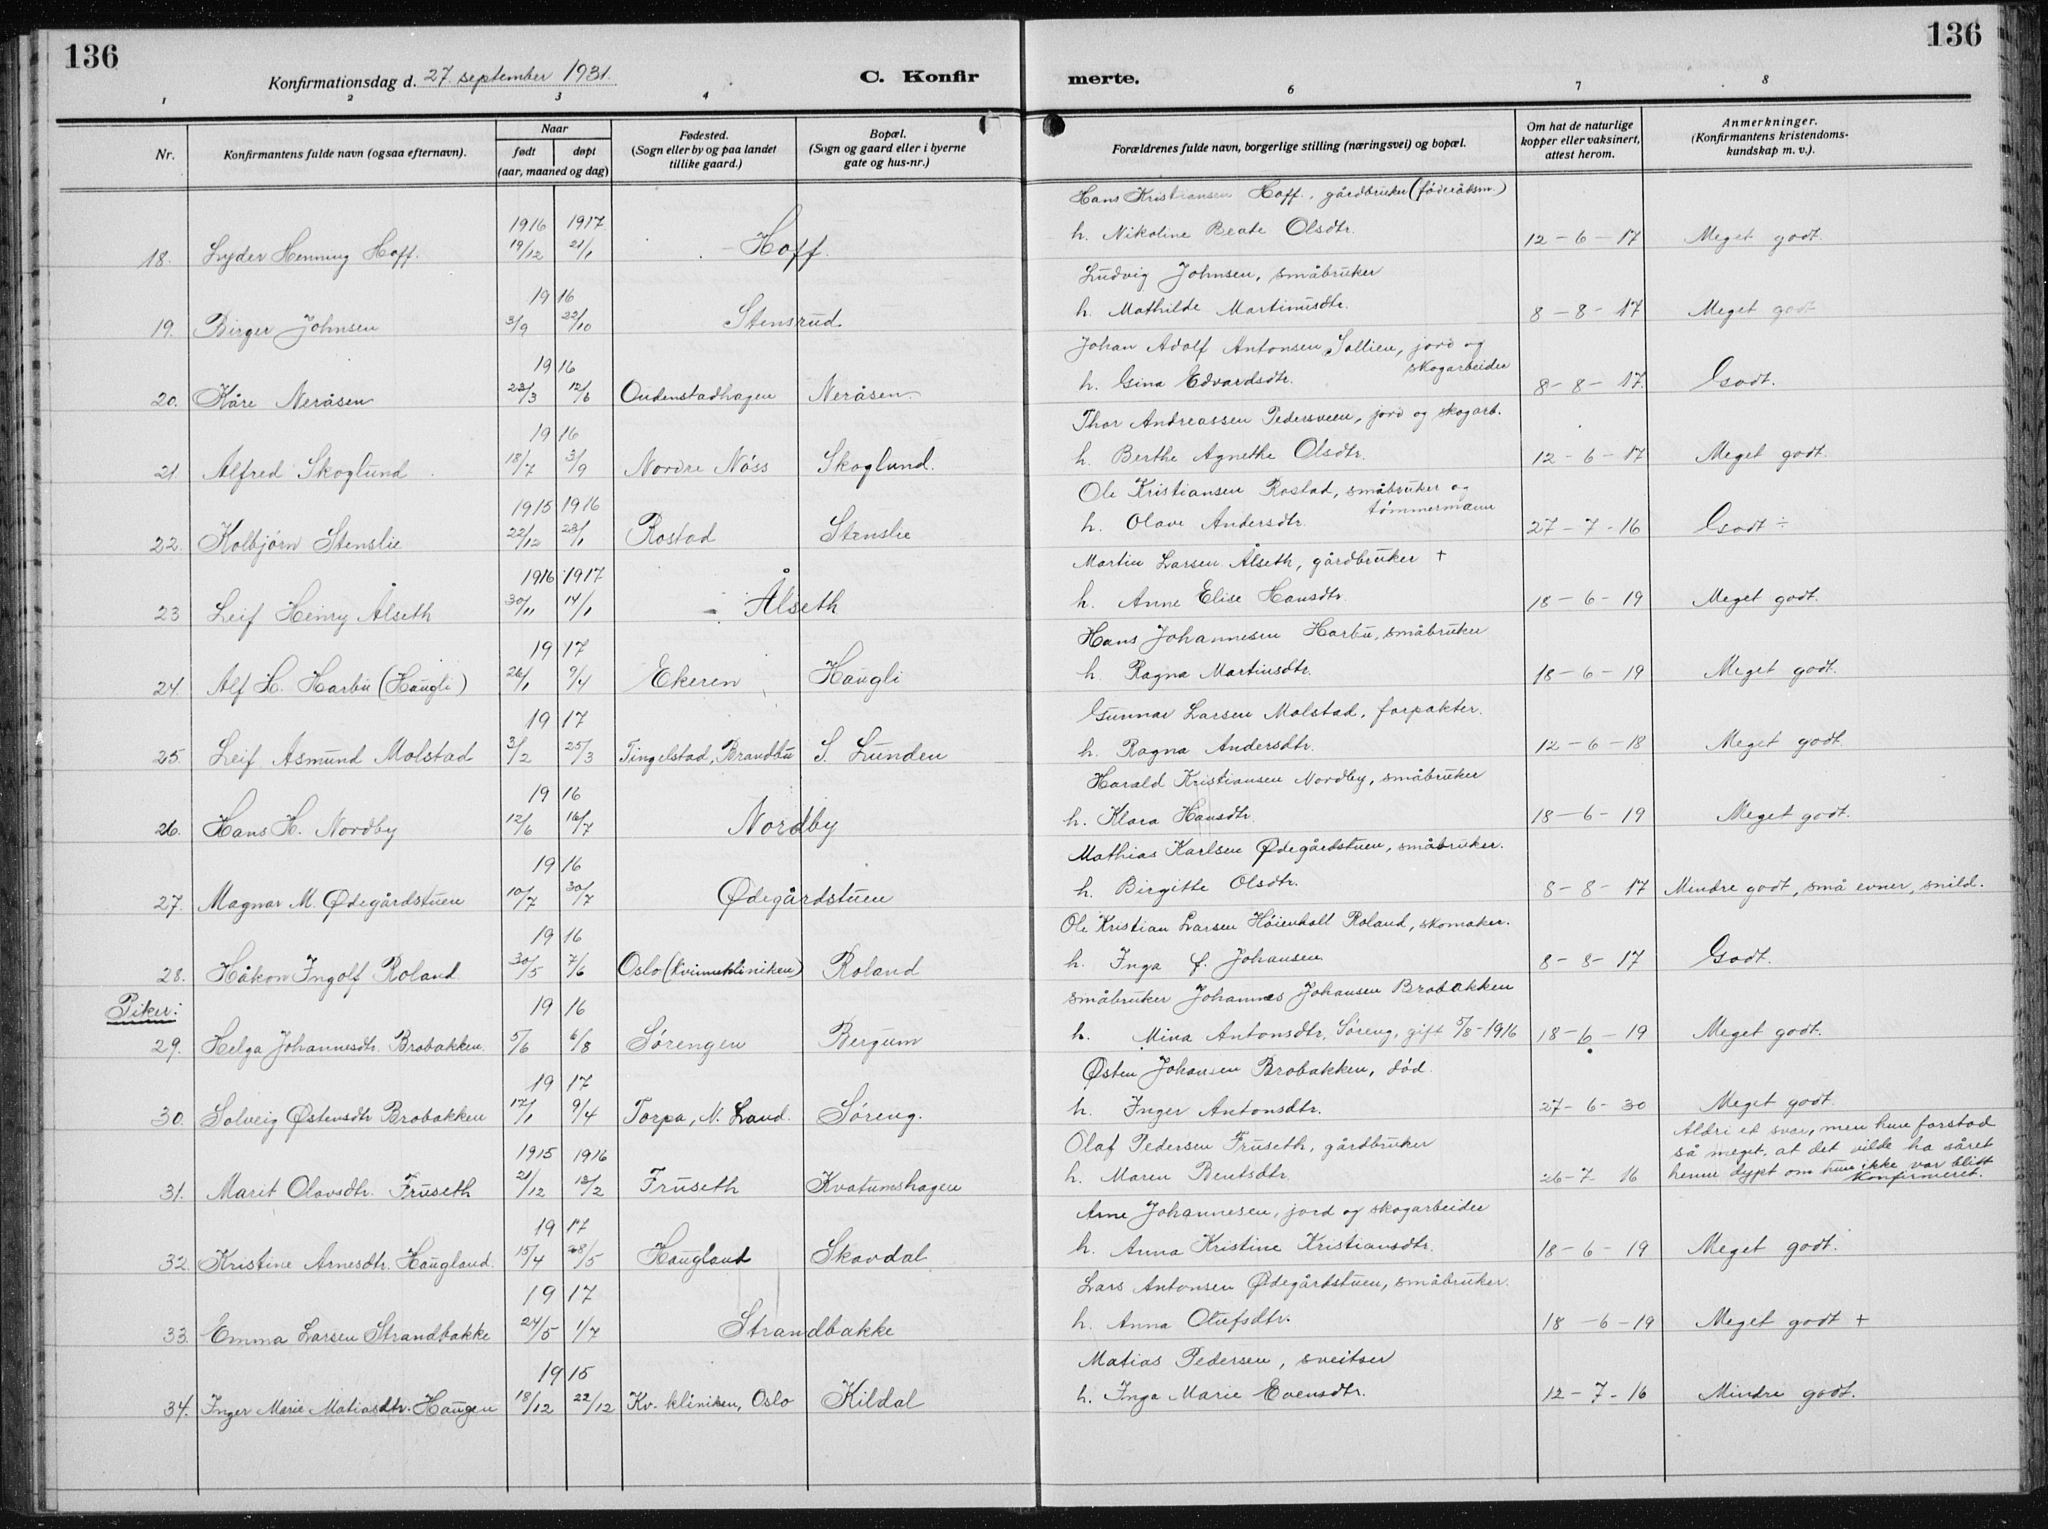 136
136
Konfirmationsdag d. 27. september 1931.
C. Konfirmerte.
1 2 3 4 6 7 8
Nr.
Konfirmantens fulde navn (ogsaa efternavn).
Naar
født døpt
(aar, maaned og dag)
Fødested.
(Sogn eller by og paa landet
tillike gaard.)
Bopæl.
(Sogn og gaard eller i byerne
gate og hus-nr.)
Forældrenes fulde navn, borgerlige stilling (næringsvei) og bopæl.
Om hat de naturlige
kopper eller vaksinert,
attest herom.
Anmerkninger.
(Konfirmantens kristendoms-
kundskap m. v.).
Hans Kristiansen Hoff, gårdbruker (föderåtsm.)
1916 1917
18. Lyder Henning Hoff. 19/12 21/1 Hoff. h. Nikoline Beate Olsdtr. 12-6-17 Meget godt.
Ludvig Johnsen, småbruker
19 16
19. Birger Johnsen 3/9 22/10 Stensrud h. Mathilde Martinusdtr. 8-8-17 Meget godt
Johan Adolf Antonsen Sollien, jord og
skogarbeider
19 16
20. Kåre Neråsen 22/3 12/6 Oudenstadhagen Neråsen h. Gina Edvardsdtr. 8-8-17. Godt.
Thor Andreassen Pedersveen, jord og skogarb.
19 16
21. Alfred Skoglund 18/7 3/9 Nordre Nøss Skoglund. h. Berthe Agnethe Olsdtr. 12-6-17 Meget godt.
Ole Kristiansen Rostad, småbruker og
tømmermann
1915 1916
22. Kolbjørn Stenslie 22/12 23/1 Rostad Stenslie h. Olave Andersdtr. 27-7-16 Godt ÷
Martin Larsen Ålseth, gårdbruker +
1916 1917
23 Leif Henry Ålseth 30/11 14/1 Ålseth h. Anne Elise Hansdtr. 18-6-19 Meget godt.
Hans Johannesen Harbu, småbruker
19 17
24. Alf H. Harbu (Haugli) 26/1 9/4 Ekeren Haugli h. Ragna Martinsdtr. 18-6-19 Meget godt.
Gunnar Larsen Molstad, forpakter.
19 17
25. Leif Asmund Molstad 3/2 25/3 Tingelstad, Brandbu S. Lunden h. Ragna Andersdtr. 12-6-18 Meget godt
Harald Kristiansen Nordby, småbruker
19 16
26. Hans H. Nordby 12/6 16/7 Nordby h. Klara Hansdtr. 18-6-19 Meget godt.
Mathias Karlsen Ødegårdstuen, småbruker.
19 16
27. Magnar M. Ødegårdstuen 10/7 30/7 Ødegårdstuen h. Birgitte Olsdtr. 8-8-17 Mindre godt, små evner, snild.
Ole Kristian Larsen Høienhall Roland, skomaker.
19 16
28. Håkon Ingolf Roland 30/5 7/6 Oslo (Kvinneklinikken) Roland h. Inga f. Johansen 8-8-17 Godt.
Piker:
småbruker Johannes Johansen Brobakken
19 16
29. Helga Johannesdtr. Brobakken. 5/6 6/8 Sørengen Bergum h. Mina Antonsdtr. Søreng, gift 5/8-1916 18-6-19 Meget godt.
Østen Johansen Brobakken, død.
19 17
30. Solveig Østensdtr Brobakken 12/1 9/4 Torpa, N. Land. Søreng. h. Inger Antonsdtr. 27-6-30 Meget godt.
Olaf Pedersen Fruseth, gårdbruker
Aldri et svar, men hun forstod
så meget, at det vilde ha såret
henne dypt om hun ikke var blitt
konfirmeret.
1915 1916
31. Marit Olavsdtr. Fruseth 21/12 13/2 Fruseth Kvatumshagen h. Maren Bentsdtr 26-7 16
Arne Johannesen, jord og skogarbeider
19 17
32. Kristine Arnesdtr. Haugland. 15/4 28/5 Haugland Skavdal h. Anna Kristine Kristiansdtr. 18-6-19 Meget godt.
Lars Antonsen Ødegårdstuen, småbruker.
19 17
33. Emma Larsen Strandbakke 24/5 1/7 Strandbakke h. Anna Olufsdtr. 18-6-19 Meget godt +
Matias Pedersen, sveitser
19 15
34. Inger Marie Matiasdtr. Haugen 18/12 22/12 Kv. kliniken, Oslo Kildal h. Inga Marie Evensdtr. 12-7-16 Mindre godt.